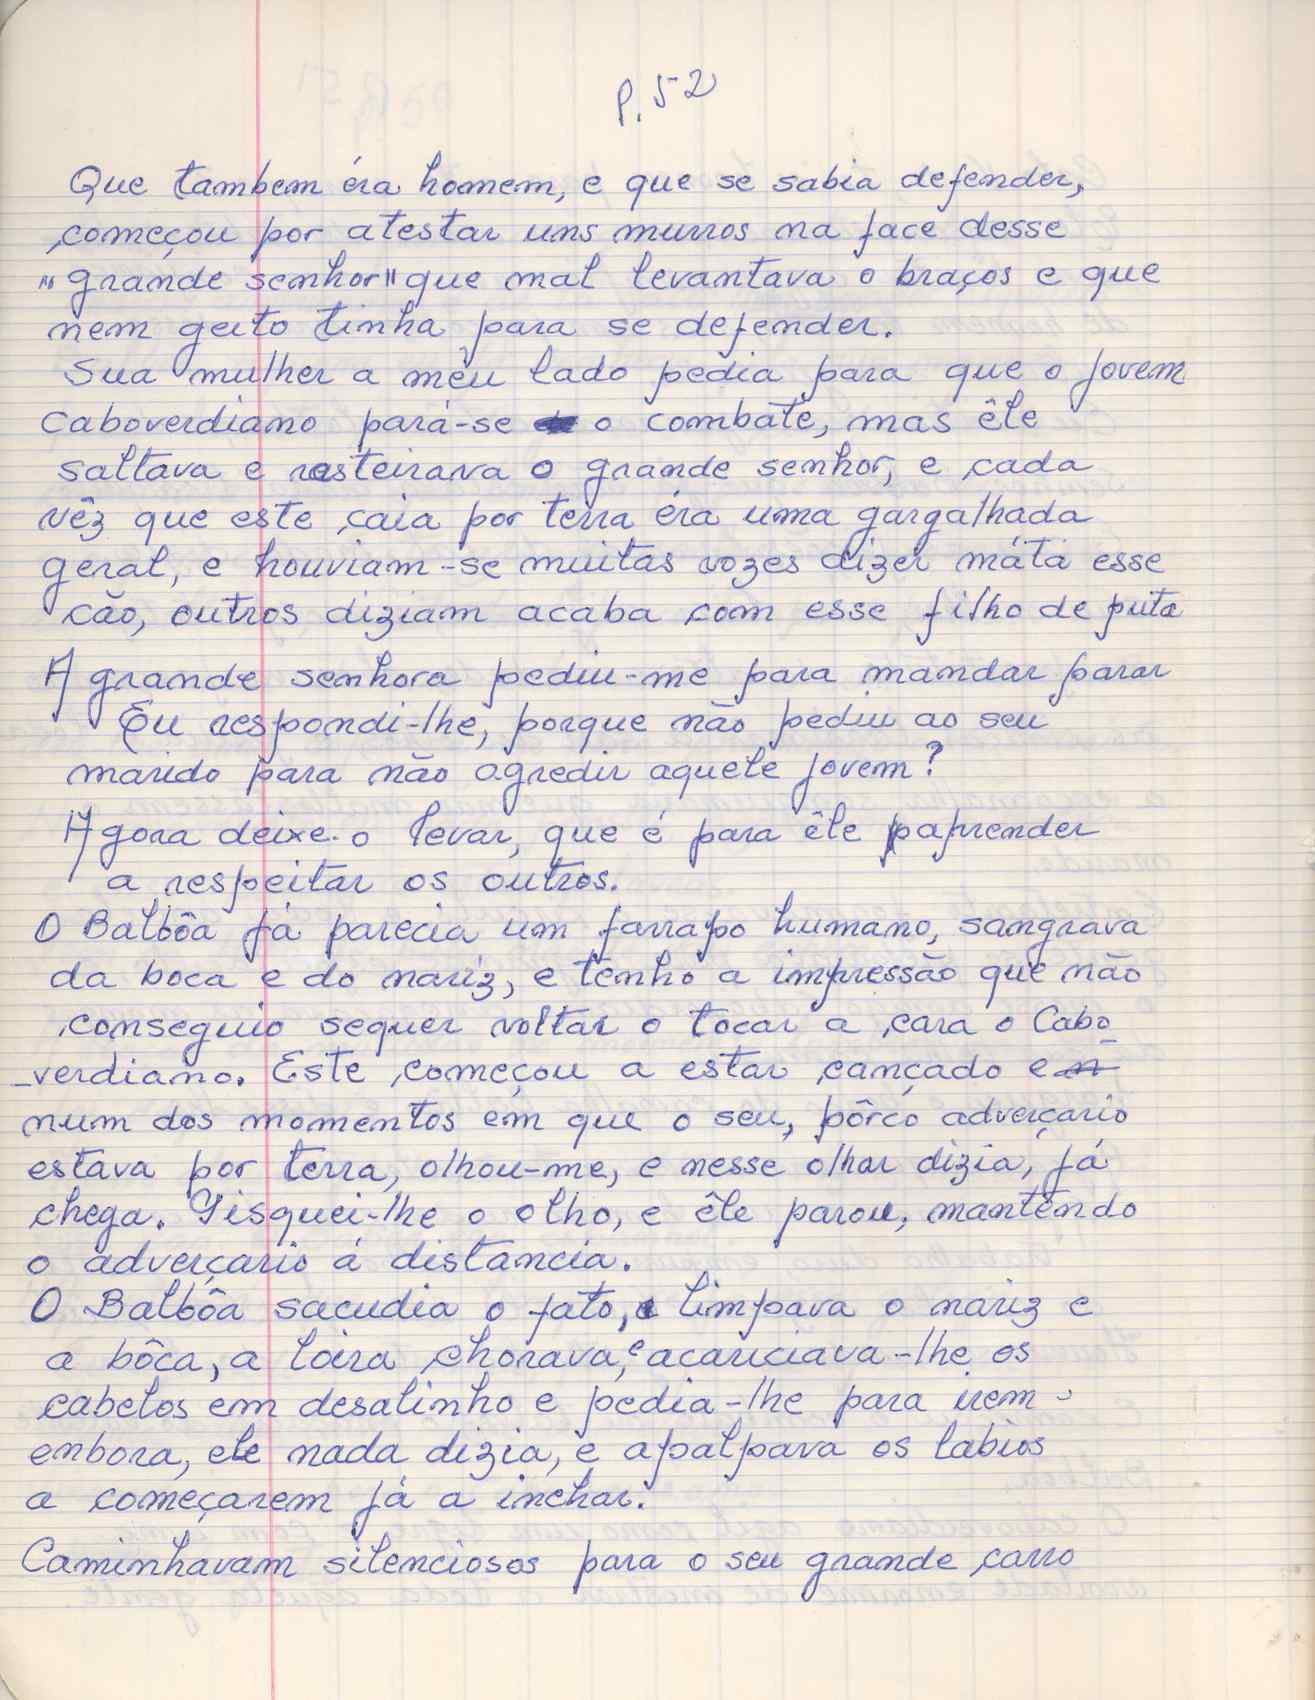 P. 52
Que tambem éra homem, e que se sabia defender,
começou por atestar uns murros na face desse
"grande senhor" que mal levantava o braços e que
nem geito tinha para se defender.
Sua mulher a meu lado pedia para que o jovem
caboverdiano pará-se o combate, mas êle
saltava e rasteirava o grande senhor, e cada
vêz que este caia por terra éra uma gargalhada
geral, e houviam-se muitas vozes dizer máta esse
cão, outros diziam acaba com esse filho de puta
A grande senhora pediu-me para mandar parar
Eu respondi-lhe, porque não pediu ao seu
marido para não agredir aquele jovem?
Agora deixe-o levar, que é para êle paprender
a respeitar os outros.
O Balbôa já parecia um farrapo humano, sangrava
da boca e do nariz, e tenho a impressão que não
conseguio sequer voltar o tocar a cara o Cabo_
_verdiano. Este começou a estar cançado e n
num dos momentos em que o seu, pôrco adverçario
estava por terra, olhou-me, e nesse olhar dizia, já
chega. Pisquei-lhe o olho, e êle parou, mantendo
o adverçario á distancia.
O Balbôa sacudia o fato, limpava o nariz e
a bôca, a loira chorava, e acariciava-lhe os
cabelos em desalinho e pedia-lhe para irem -
embora, ele nada dizia, e apalpava os labios
a começarem já a inchar.
Caminhavam silenciosos para o seu grande carro